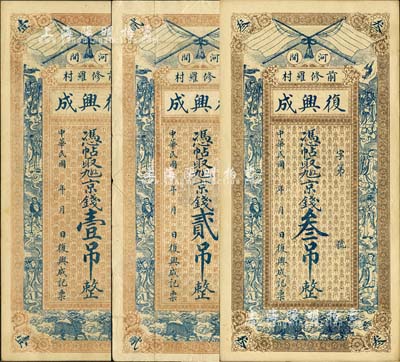 河間
前修羅村
復興成
字第 號
憑帖取京錢叁吊整
中華民國 年 月 日復興成記票
河間
前修羅村
興成
憑帖取京錢貳吊整
中華民國 年 月 日復興成記票
河間
前修羅村
興成
憑帖取京錢壹吊整
中華民國 年 月 日復興成記票